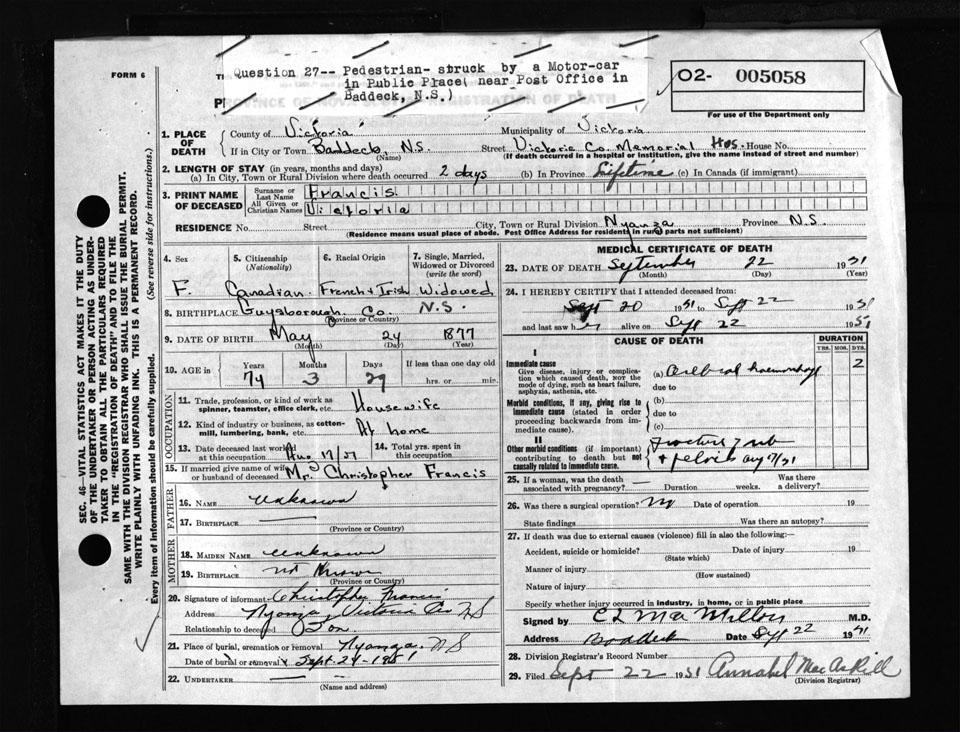 FORM 6
Question 27-- Pedestrian- struck by a Motor-car
in Public Place( near Post Office in
Baddeck, N.S.)
O2- 005058
For use of the Department only
1. PLACE OF DEATH
County of Victoria Municipality of Victoria
If in City or Town Baddeck, N.S. Street Victoria Co. Memorial Hos. House No.
(Name) (If death occurred in a hospital or institution, give the name instead of street and number)
2. LENGTH OF STAY (in years, months and days)
(a) In City, Town or Rural Division where death occurred 2 days (b) In Province Lifetime (c) In Canada (if immigrant)
3. PRINT NAME OF DECEASED
Surname or Last Name Francis
All Given or Christian Names Victoria
RESIDENCE No. Street City, Town or Rural Division Nyanza Province N.S.
(Residence means usual place of abode. Post Office Address for residents in rural parts not sufficient)
4. Sex 5. Citizenship (Nationality) 6. Racial Origin 7. Single, Married, Widowed or Divorced (write the word)
F. Canadian French & Irish Widowed
8. BIRTHPLACE Guysborough Co. N.S.
(Province or Country)
9. DATE OF BIRTH May 24 1877
(Month) (Day) (Year)
10. AGE in Years Months Days If less than one day old
74 3 29 hrs. or min.
OCCUPATION
11. Trade, profession, or kind of work as spinner, teamster, office clerk, etc. Housewife
12. Kind of industry or business, as cotton-mill, lumbering, bank, etc. At home
13. Date deceased last worked at this occupation Aug 17/51
14. Total yrs. spent in this occupation
15. If married give name of wife or husband of deceased Mr. Christopher Francis
FATHER
16. NAME unknown
17. BIRTHPLACE
(Province or Country)
MOTHER
18. MAIDEN NAME unknown
19. BIRTHPLACE not known
(Province or Country)
20. Signature of informant Christopher Francis
Address Nyanza Victoria Co NS
Relationship to deceased Son
21. Place of burial, cremation or removal Nyanza NS
Date of burial or removal Sept. 24-1951
22. UNDERTAKER
(Name and address)
MEDICAL CERTIFICATE OF DEATH
23. DATE OF DEATH September 22 1951
(Month) (Day) (Year)
24. I HEREBY CERTIFY that I attended deceased from:
Sept 20 1951 to Sept 22 1951
and last saw her alive on Sept 22 1951
CAUSE OF DEATH
DURATION
YRS. MOS. DYS.
I
Immediate cause
Give disease, injury or complication which caused death, not the mode of dying, such as heart failure, asphyxia, asthenia, etc.
(a) Cerebral haemorrhage 2
due to
Morbid conditions, if any, giving rise to immediate cause (stated in order proceeding backwards from immediate cause).
(b)
due to
(c)
II
Other morbid conditions (if important) contributing to death but not causally related to immediate cause.
fracture rib
& pelvis
25. If a woman, was the death associated with pregnancy? Duration weeks. Was there a delivery?
26. Was there a surgical operation? Date of operation 19
State findings Was there an autopsy?
27. If death was due to external causes (violence) fill in also the following:—
Accident, suicide or homicide? Date of injury 19
(State which)
Manner of injury
(How sustained)
Nature of injury
Specify whether injury occurred in industry, in home, or in public place
Signed by C L MacMillan M.D.
Address Baddeck Date Sept 22 1951
28. Division Registrar's Record Number
29. Filed Sept 22 1951 Annabel MacAskill
(Division Registrar)
SEC. 46—VITAL STATISTICS ACT MAKES IT THE DUTY
OF THE UNDERTAKER OR PERSON ACTING AS UNDER-
TAKER TO OBTAIN ALL THE PARTICULARS REQUIRED
IN THE "REGISTRATION OF DEATH" AND TO FILE THE
SAME WITH THE DIVISION REGISTRAR WHO SHALL ISSUE THE BURIAL PERMIT.
WRITE PLAINLY WITH UNFADING INK. THIS IS A PERMANENT RECORD.
Every item of information should be carefully supplied. (See reverse side for instructions.)